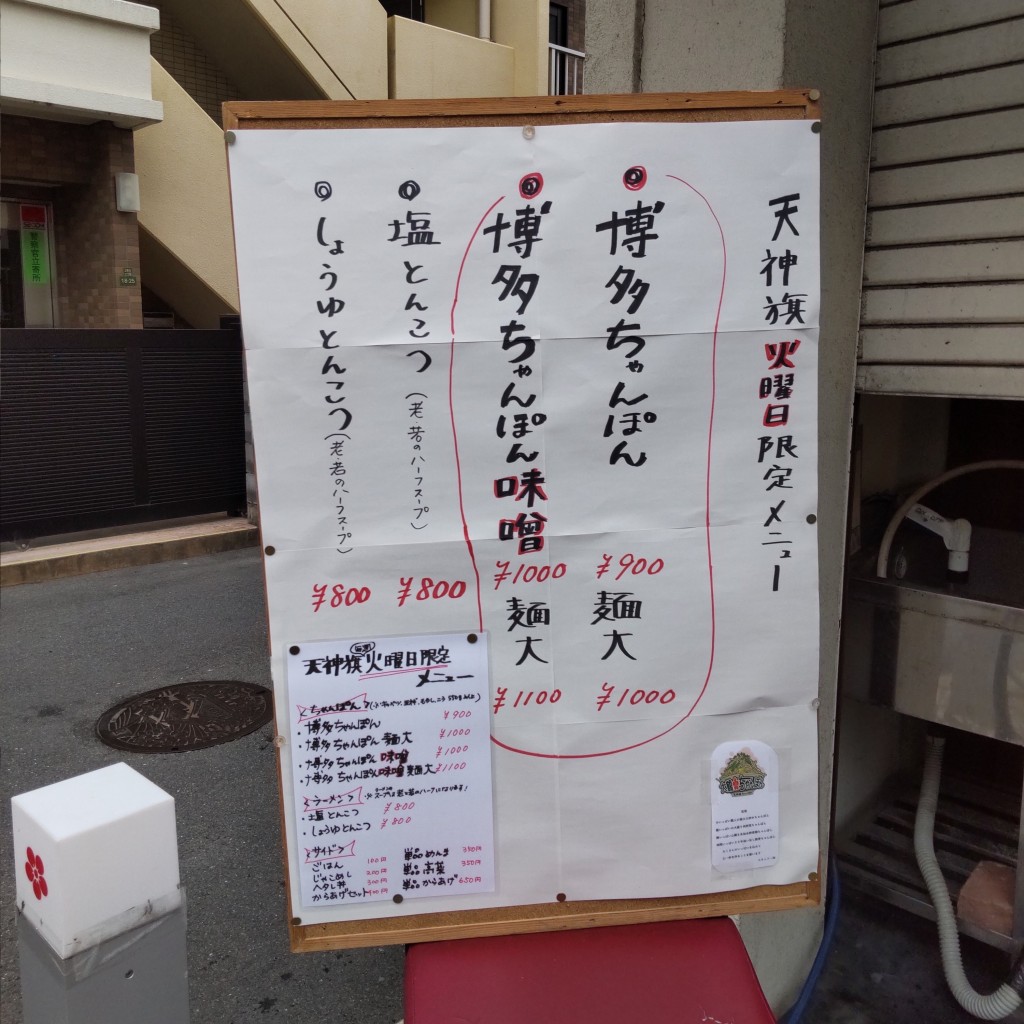 天神旗火曜日限定メニュー
◎博多ちゃんぽん ¥900
麺大 ¥1000
◎博多ちゃんぽん味噌 ¥1000
麺大 ¥1100
◎塩とんこつ(老・若のハーフスープ) ¥800
◎しょうゆとんこつ(老・若のハーフスープ) ¥800
天神旗火曜日限定
メニュー
ちゃんぽん
・博多ちゃんぽん ¥900
・博多ちゃんぽん 麺大 ¥1000
・博多ちゃんぽん味噌 ¥1000
・博多ちゃんぽん味噌 麺大 ¥1100
ラーメン
・塩とんこつ ¥800
・しょうゆとんこつ ¥800
サイド
ごはん
じゃこめし
ヘタレ丼
からあげセット
単品めんま 350円
単品 高菜 350円
単品からあげ 650円